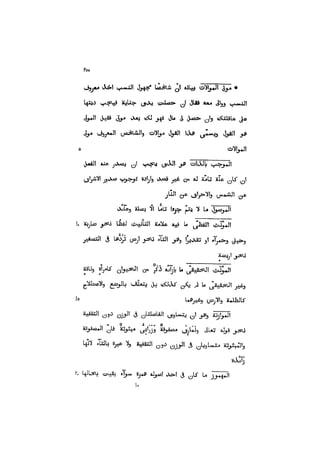 ٢٥٥
* مولى الموالات بيانه انّ شخصًا مجهول النسب اخا معروف
النسب ووالى معه فقال ان حصلت يدى جناية فيجب ديتها
على عاقلتك وان حصل لى مال فهو لك بعد موتى فقبل المولى
هو القول ويسمّى هذا القول موالات والشخص المعروف مولى
الموالات ٥
الموجب بالذات هو الذى يجب ان يصدر عنه الفعل
ان كان علّة تامّة له من غير قصد وارادة كوجوب صدور الاشراق
عن الشمس والاحراق عن النار
الموصول ما لا يتم جزءا تامّا الّا بصلة وعائد
المؤنّث اللفظى ما فيه علامة التأنيث لفظا نحو ضاربة ١٠
وحبلى وحمراء او تقديرًا وهو التاء نحو ارض تردّها فى التصغير
نحو اريضة
المؤنّث الحقيقى ما بازائه ذكر من الحيوان كامرأة وناقة
وغير الحقيقى ما لم يكن كذلك بل يتعلّق بالوضع والاصطلاح
كالظلمة والارض وغيرهما ١٥
الموازنة وهو ان يتساوى الفاصلتان فى الوزن دون التقفية
نحو قوله تعالى ونمارق مصفوفة وزرابى مبثوثة فانّ المصفوفة
والمبثوثة متساويان فى الوزن دون التقفية ولا عبرة بالتاء لانّها
زائدة
المهموز ما كان فى احد اصوله همزة سواء بقيت بحالها ٢٠